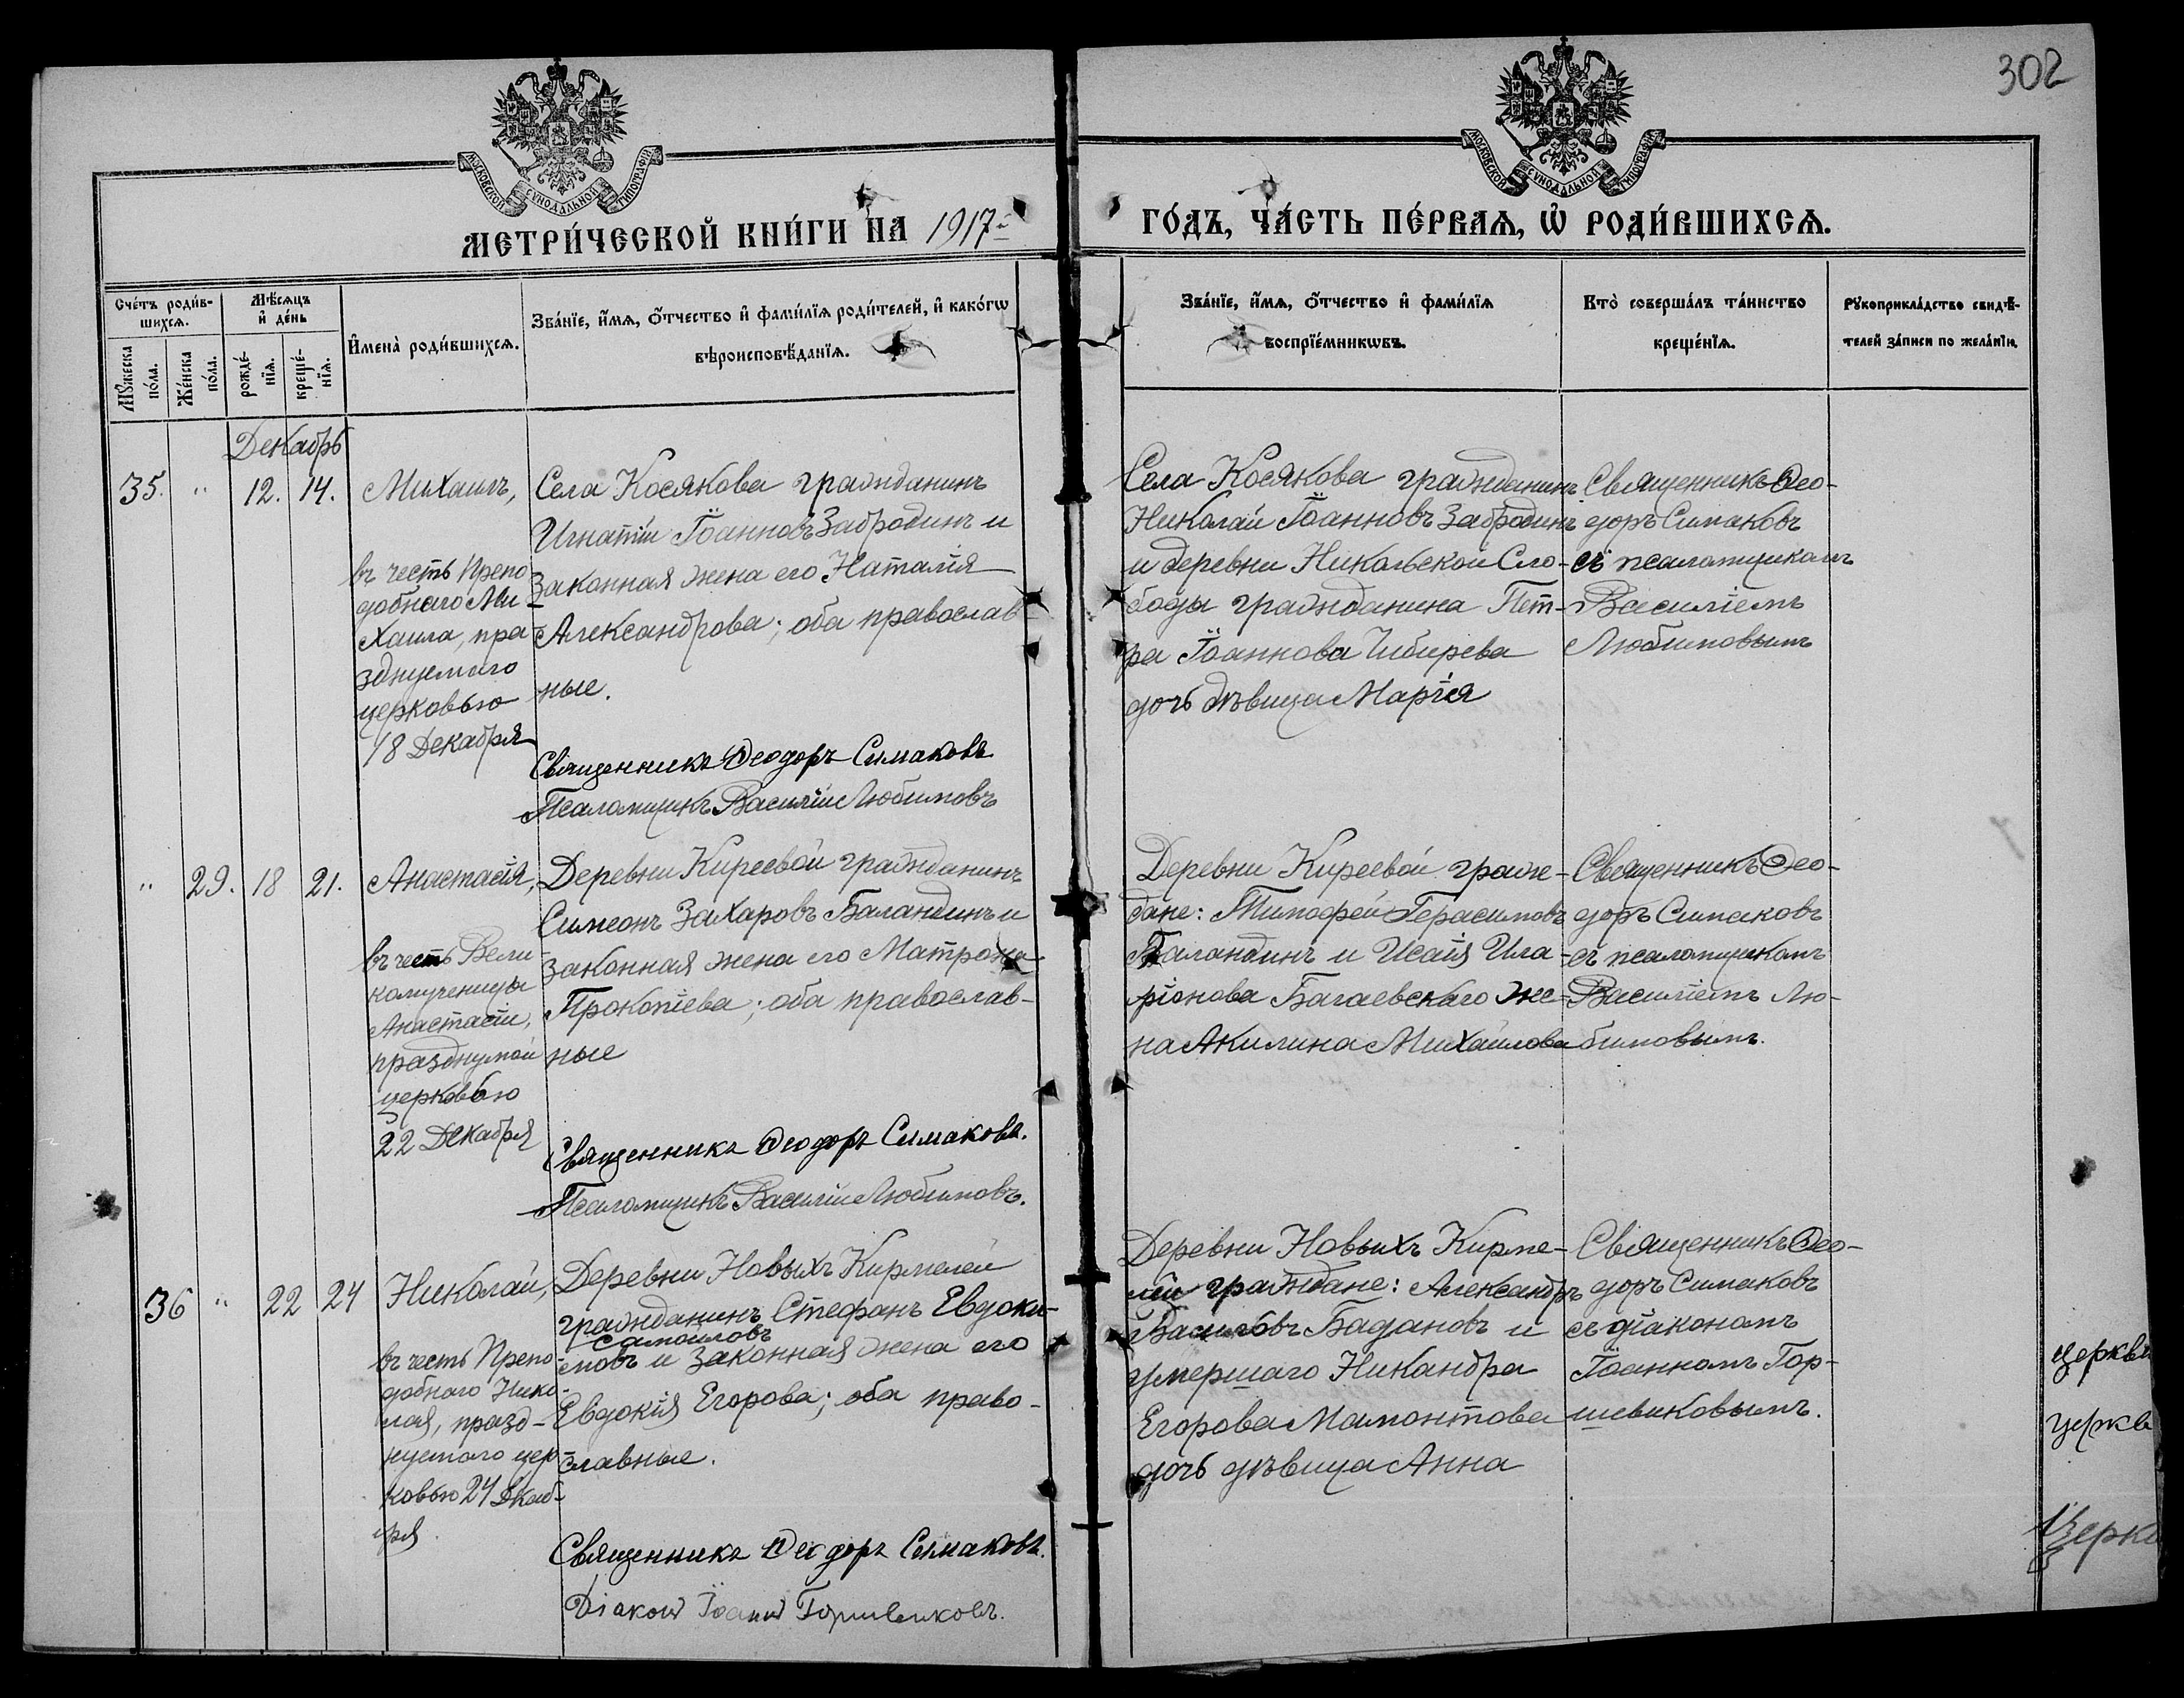 302
МОСКОВСКОЙ СѴНОДАЛЬНОЙ ТИПОГРАФІИ
МОСКОВСКОЙ СѴНОДАЛЬНОЙ ТИПОГРАФІИ
МЕТРИ́ЧЕСКОЙ КНИ́ГИ НА 1917 ГО́ДЪ, ЧА́СТЬ ПЕ́РВАѦ, Ѡ҆ РОДИ́ВШИХСѦ.
Сче́тъ роди́в-
шихсѧ.
Мѣ́сѧцъ
и҆ де́нь
Мꙋ́жеска
по́ла.
Же́нска
по́ла.
рожде́-
нїѧ.
креще́-
нїѧ.
И҆мена̀ роди́вшихсѧ.
Зва́нїе, и҆́мѧ, ѻ҆́тчество и҆ фами́лїѧ роди́телей, и҆ како́гѡ
вѣроисповѣ́данїѧ.
Зва́нїе, и҆́мѧ, ѻ҆́тчество и҆ фами́лїѧ
воспрїе́мникѡвъ.
Кто̀ соверша́лъ та́инство
креще́нїѧ.
Рꙋкоприкла́дство свидѣ́-
телей за́писи по жела́нїю.
Декабрь
35. " 12. 14.
Михаилъ,
въ честь Препо
добнаго Ми
хаила, пра-
зднуемаго
церковью
18 Декабря
Села Косякова гражданинъ
Игнатій Іоанновъ Забродинъ и
законная жена его Наталія
Александрова; оба православ-
ные.
Священникъ Ѳеодоръ Симаковъ
Псаломщикъ Василій Любимовъ
Села Косякова гражданинъ
Николай Іоанновъ Забродинъ
и деревни Никольской Сло-
боды гражданина Пет-
ра Іоаннова Чибирева
дочь дѣвица Марія
Священникъ Ѳео-
доръ Симаковъ
съ псаломщикомъ
Василіемъ
Любимовымъ
" 29. 18 21.
Анастасія,
въ честь Вели
комученицы
Анастасіи,
празднуемой
церковью
22 Декабря
Деревни Киреевой гражданинъ
Симеонъ Захаровъ Баландинъ и
законная жена его Матрона
Прокопіева; оба православ-
ные
Священникъ Ѳеодоръ Симаковъ.
Псаломщикъ Василій Любимовъ.
Деревни Киреевой граж-
дане: Тимофей Герасимовъ
Баландинъ и Исаія Ила-
ріонова Багаевскаго же-
на Акилина Михайлова
Священникъ Ѳео-
доръ Симаковъ
съ псаломщикомъ
Василіемъ Лю-
бимовымъ.
36 " 22 24
Николай,
въ честь Препо-
добнаго Нико-
лая, празд-
нуемаго цер
ковью 24 Декаб-
ря.
Деревни Новыхъ Кирмелей
гражданинъ Стефанъ Евдоки-
Самойловъ
мовъ и законная жена его
Евдокія Егорова; оба право-
славные.
Священникъ Ѳеодоръ Симаковъ.
Діаконъ Іоаннъ Горшевиковъ.
Деревни Новыхъ Кирме-
лей граждане: Александръ
Васильевъ Бадановъ и
умершаго Никандра
Егорова Мамонтова
дочь дѣвица Анна
Священникъ Ѳео-
доръ Симаковъ
съ діакономъ
Іоанномъ Гор-
шевиковымъ.
церкви
церкв
Церко